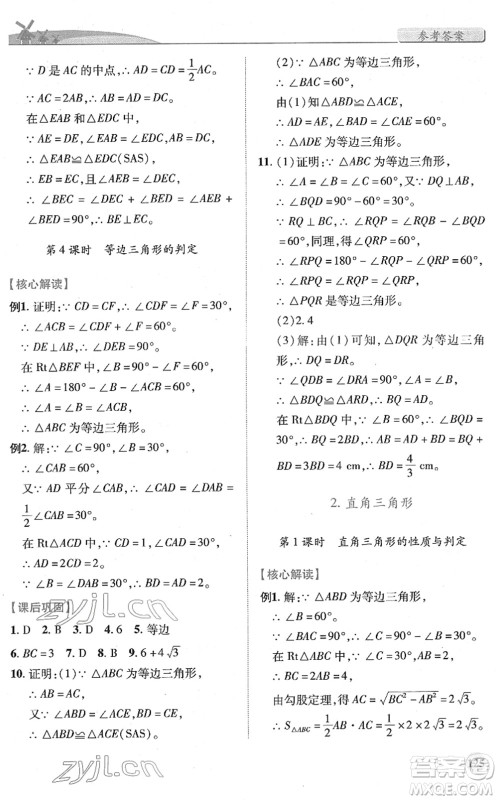 参考答案
∵ D 是 AC 的中点,∴ AD=CD=1/2 AC。
∵ AC=2AB,∴ AB=AD=CD。
在△EAB 和△EDC 中,
∵ AE=DE,∠EAB=∠EDC,AB=DC,
∴ △EAB≌△EDC(SAS)。
∴ EB=EC,且∠AEB=∠DEC。
∴ ∠BEC=∠DEC+∠BED=∠AEB+
∠BED=90°,∴ EB⊥EC。
第 4 课时 等边三角形的判定
【核心解读】
例1. 证明:∵ CD=CF,∠CDF=∠F=30°,
∴ ∠ACB=∠CDF+∠F=60°。
∵ DE⊥AB,∴ ∠BED=90°。
在 Rt△BEF 中,∠B=90°-∠F=60°,
∴ ∠A=180°-∠B-∠ACB=60°。
∴ ∠A=∠B=∠ACB。
∴ △ABC 为等边三角形。
例2. 解:∵ ∠C=90°,∠B=30°,
∴ ∠CAB=60°。
又∵ AD 平分∠CAB,∴ ∠CAD=
1/2 ∠CAB=30°。
在 Rt△ACD 中,∵ CD=1,∠CAD=30°,
∴ AD=2CD=2。
【课后巩固】
1. D 2. B 3. D 4. 6 5. 等边
6. BC=3 7. D 8. B 9. 6+4√3
10. 证明:(1)∵ △ABC 为等边三角形,
∴ AB=AC。
又∵ AD=AE,BD=CE,
∴ △ABD≌△ACE。
(2)∵ △ABC 是等边三角形,
∴ ∠BAC=60°。
由(1)知△ABD≌△ACE,
∴ AD=AE,∠BAD=∠CAE=60°。
∴ △ADE 为等边三角形。
11. (1)证明:∵ △ABC 为等边三角形,
∴ ∠A=∠B=∠C=60°。
∵ DQ⊥AB,∴ ∠BDQ=90°。
∴ ∠BQD=90°-∠B=30°。
∵ ∠RQP=∠FQC=90°,∴ ∠DQR=
60°,同理,得∠QRP=60°。
∴ ∠RPQ=180°-∠RQP-∠QRP=60°。
∴ ∠RPQ=∠RQP=∠QRP,
∴ △PRQ 为等边三角形。
(2)2.4
(3)解:由(1)可知,△ABC 为等边三角
形,∴ DQ=DR。
∵ ∠QDB=∠DRA=90°,∠B=∠A,
∴ △BDQ≌△ARD,∴ BD=AR。
在 Rt△BDQ 中,∵ ∠BQD=90°-∠B=
30°,∴ BQ=2BD=AD。∴ BQ+
BD=3BD=4,∴ BD=4/3 cm。
2. 直角三角形
第 1 课时 直角三角形的性质与判定
【核心解读】
例1. 解:∵ △ABD 为等边三角形,
∴ ∠B=60°。
∵ ∠BAC=90°,∴ ∠C=30°。
在 Rt△ABC 中,∵ AB=2,
∴ BC=2AB=4,
由勾股定理,得 AC=√BC²-AB²=2√3。
∴ S△ABC=1/2 AB·AC=1/2×2×2√3=2√3。
zyjl.cn
zyjl.cn
答案圈